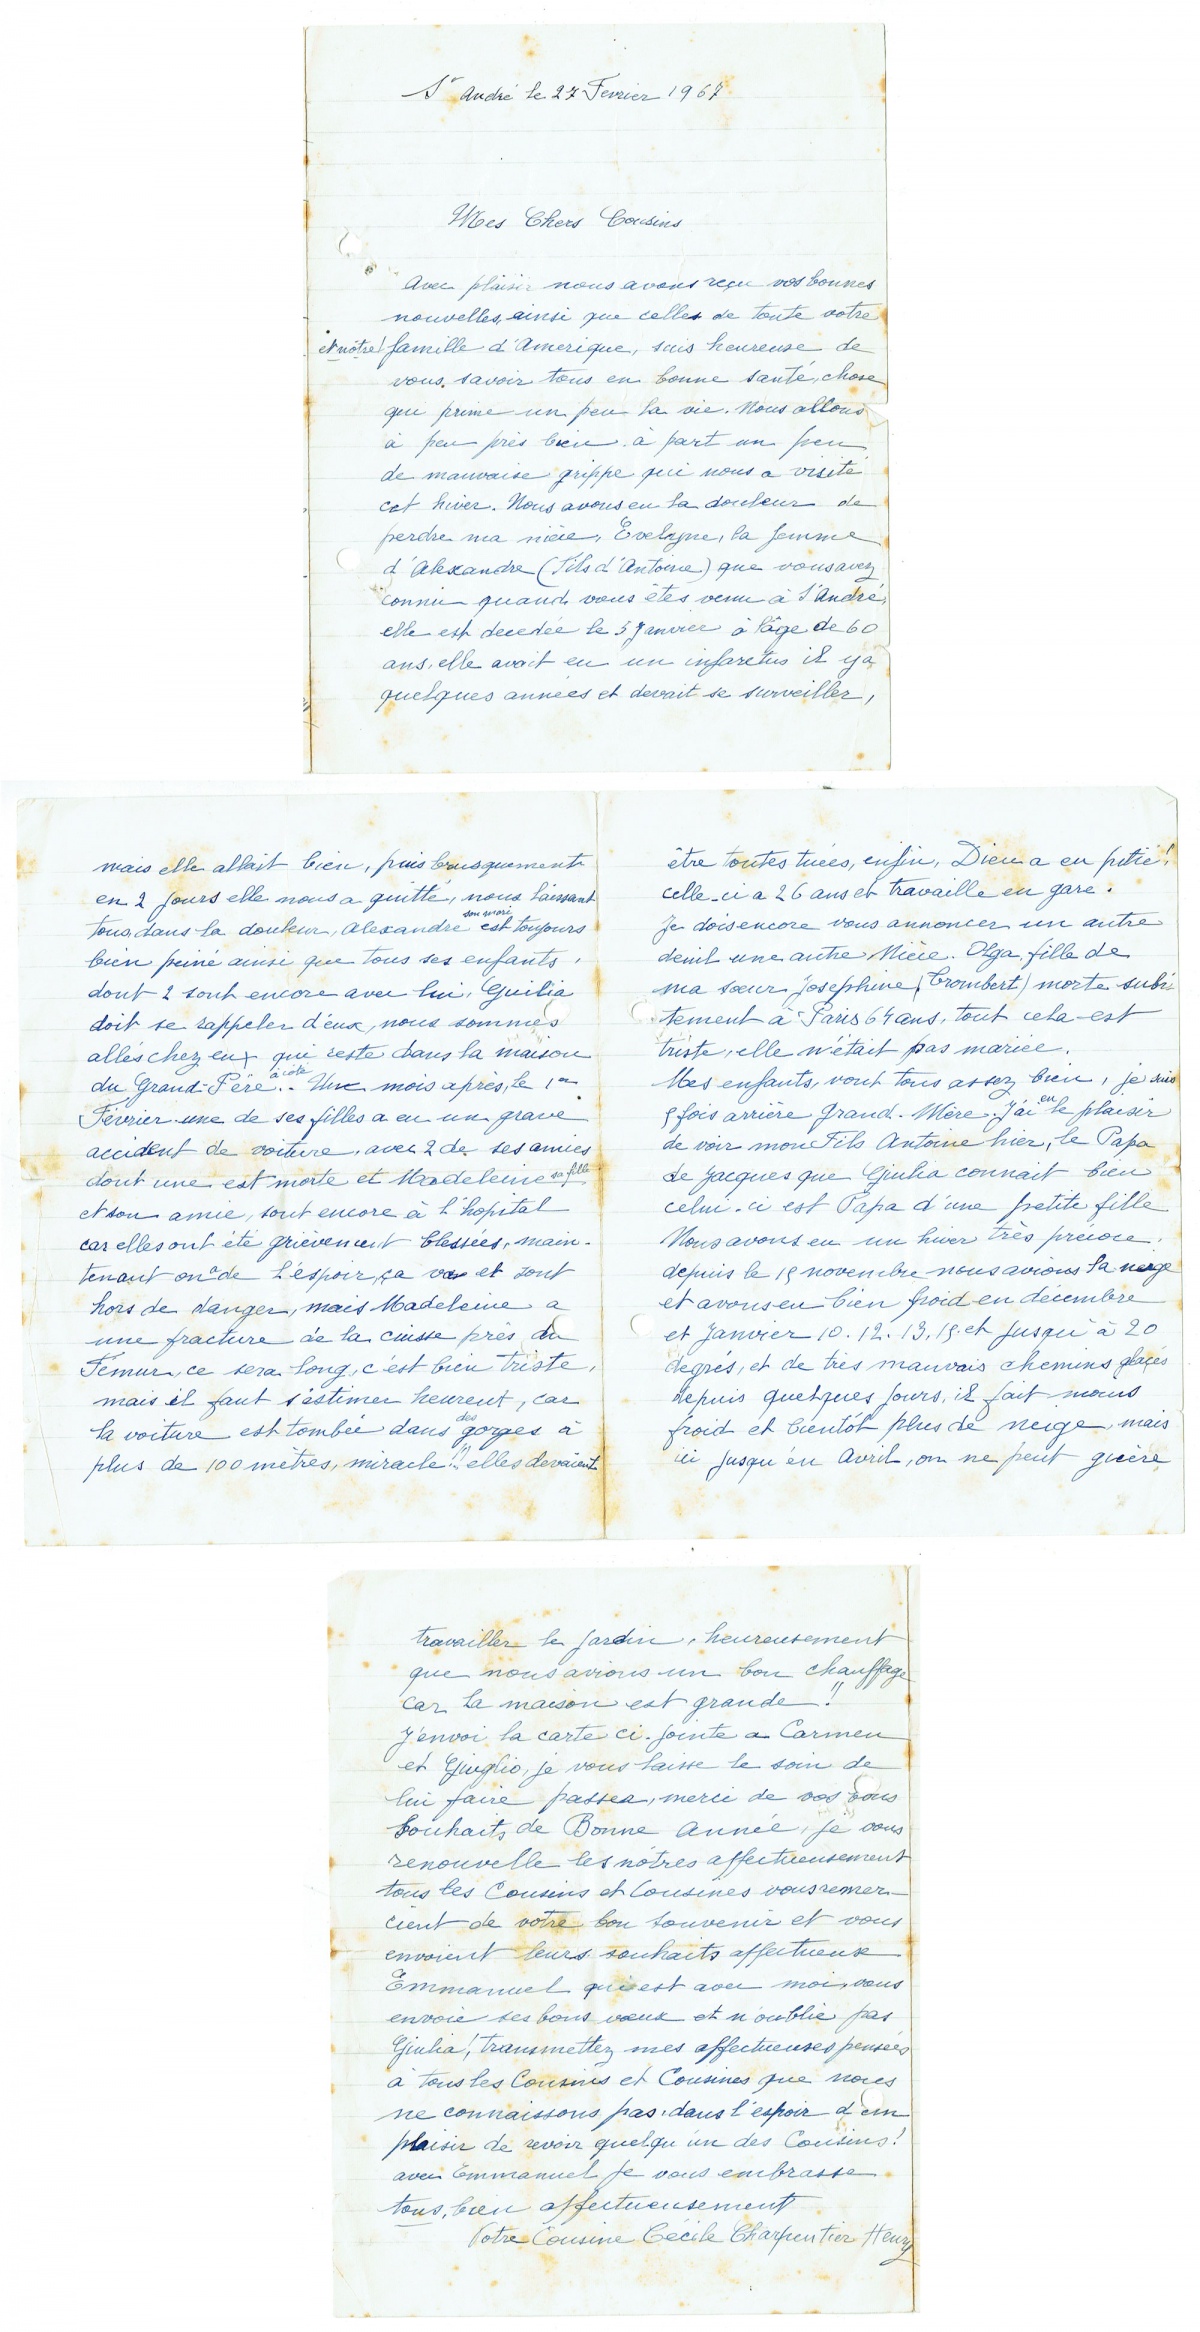 St André le 27 Fevrier 1967
Mes Chers Cousins
Avec plaisir nous avons reçu vos bonnes
nouvelles, ainsi que celles de toute votre
et nôtre! famille d'Amerique, suis heureuse de
vous savoir tous en bonne santé, chose
qui prime un peu la vie. Nous allons
à peu près bien à part un peu
de mauvaise grippe qui nous a visité
cet hiver. Nous avons eu la douleur de
perdre ma nièce, Evelyne, la femme
d'Alexandre (Fils d'Antoine) que vous avez
connu quand vous êtes venu à St André,
elle est decedée le 5 Janvier à l'âge de 60
ans, elle avait eu un infarctus il y a
quelques années et devait se surveiller,
mais elle allait bien, puis brusquement
en 2 jours elle nous a quitté, nous laissant
tous dans la douleur, Alexandre son mari est toujours
bien peiné ainsi que tous ses enfants,
dont 2 sont encore avec lui, Guilia
doit se rappeler d'eux, nous sommes
allés chez eux qui reste dans la maison
du Grand-Père à côté.. Une mois après, le 1er
Février une de ses filles a eu un grave
accident de voiture, avec 2 de ses amies
dont une est morte et Madeleine sa fille
et son amie, sont encore à l'hopital
car elles ont été grièvement blessées, main-
tenant on a de l'espoir, ça va et sont
hors de danger, mais Madeleine a
une fracture de la cuisse près du
Fémur, ce sera long, c'est bien triste,
mais il faut s'estimer heureux, car
la voiture est tombée dans des gorges à
plus de 100 mètres, miracle!! elles devaient
être toutes tuées, enfin, Dieu a eu pitié!
celle-ci a 26 ans et travaille en gare.
Je dois encore vous annoncer un autre
deuil une autre Nièce. Olga, fille de
ma sœur Josephine (Crombert) morte subi
tement à Paris 64 ans, tout cela est
triste, elle n'était pas mariée.
Mes enfants, vont tous assez bien, je suis
5 fois arrière Grand-Mère. J'ai eu le plaisir
de voir mon Fils Antoine hier, le Papa
de Jacques que Giulia connait bien
celui-ci est Papa d'une petite fille
Nous avons eu un hiver très précoce,
depuis le 15 novembre nous avions la neige
et avons eu bien froid en décembre
et Janvier 10.12.13.15. et jusqu'à 20
degrés, et de très mauvais chemins glacés
depuis quelques jours, il fait moins
froid et bientôt plus de neige, mais
ici jusqu'en Avril, on ne peut guère
travailler le jardin, heureusement
que nous avions un bon chauffage
car la maison est grande!!
J'envoi la carte ci-jointe a Carmen
et Giuglio, je vous laisse le soin de
lui faire passer, merci de vos bons
souhaits de Bonne Année, je vous
renouvelle les nôtres affectueusement
tous les Cousins et Cousines vous remer-
cient de votre bon souvenir et vous
envoient leurs souhaits affectueux
Emmanuel qui est avec moi, vous
envoie ses bons vœux et n'oublie pas
Giulia!, transmettez mes affectueuses pensées
à tous les Cousins et Cousines que nous
ne connaissons pas, dans l'espoir d'un
plaisir de revoir quelqu'un des Cousins!
avec Emmanuel je vous embrasse
tous, bien affectueusement
Votre Cousine Cécile Charpentier Henry